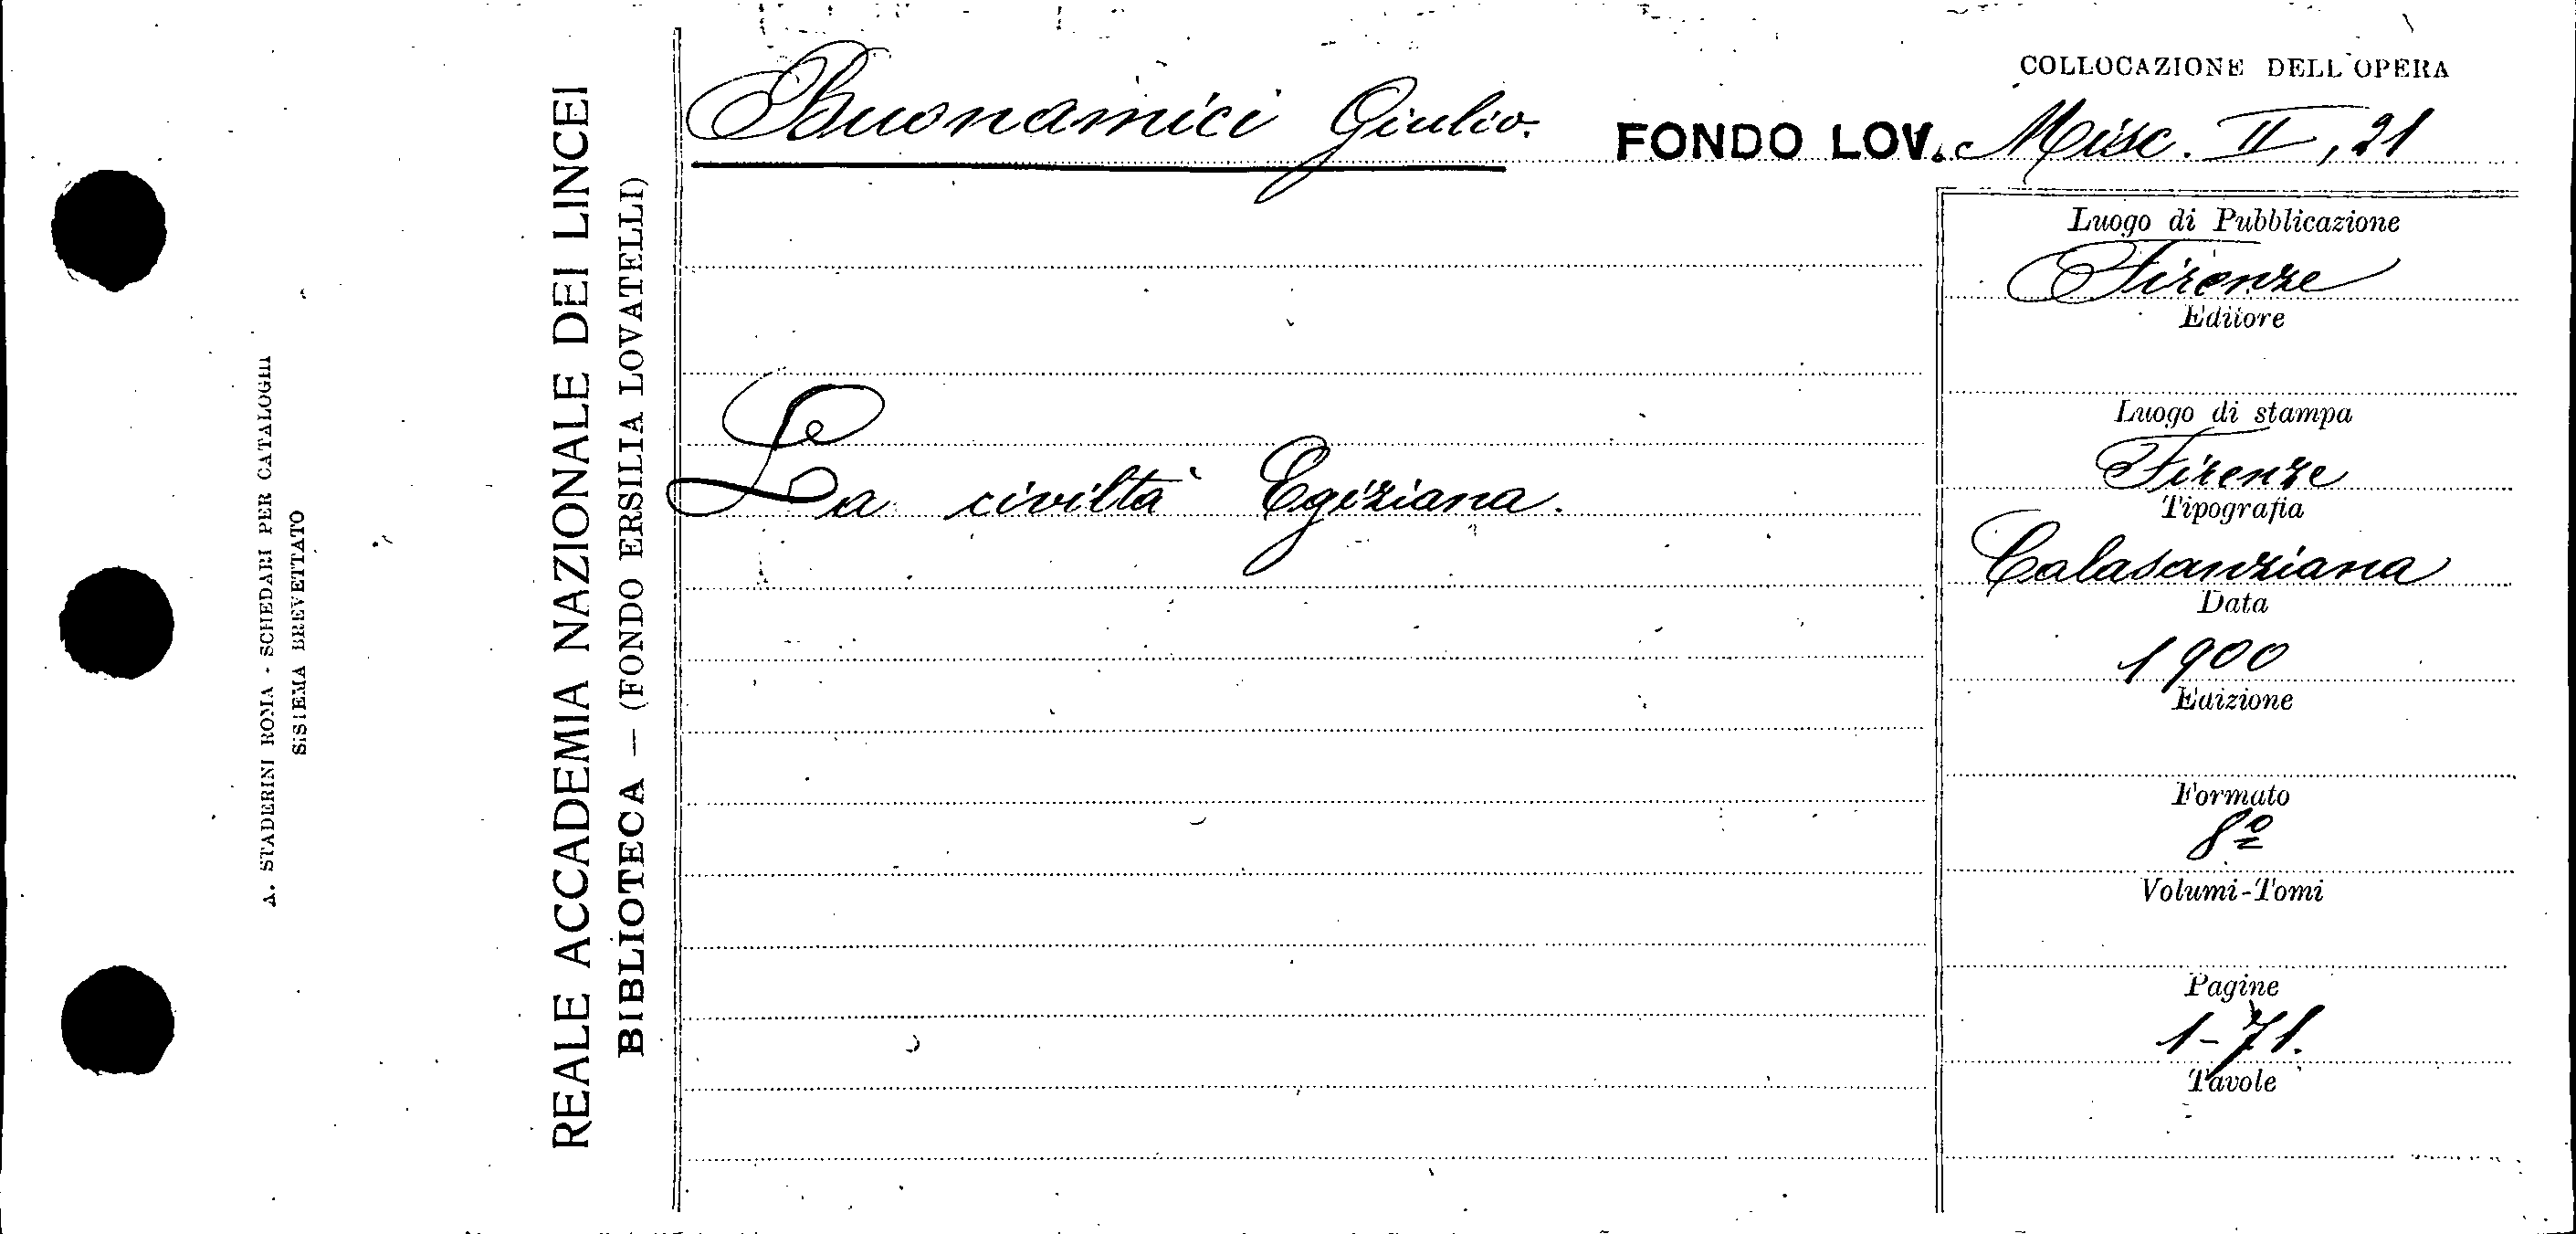 A. STADERINI ROMA - SCHEDARI PER CATALOGHI
SISTEMA BREVETTATO
REALE ACCADEMIA NAZIONALE DEI LINCEI
BIBLIOTECA — (FONDO ERSILIA LOVATELLI)
COLLOCAZIONE DELL'OPERA
Buonamici Giulio. FONDO LOV. Misc. II, 21
La civiltà Egiziana.
Luogo di Pubblicazione
Firenze
Editore
Luogo di stampa
Firenze
Tipografia
Calasanziana
Data
1900
Edizione
Formato
8º
Volumi-Tomi
Pagine
1-71.
Tavole